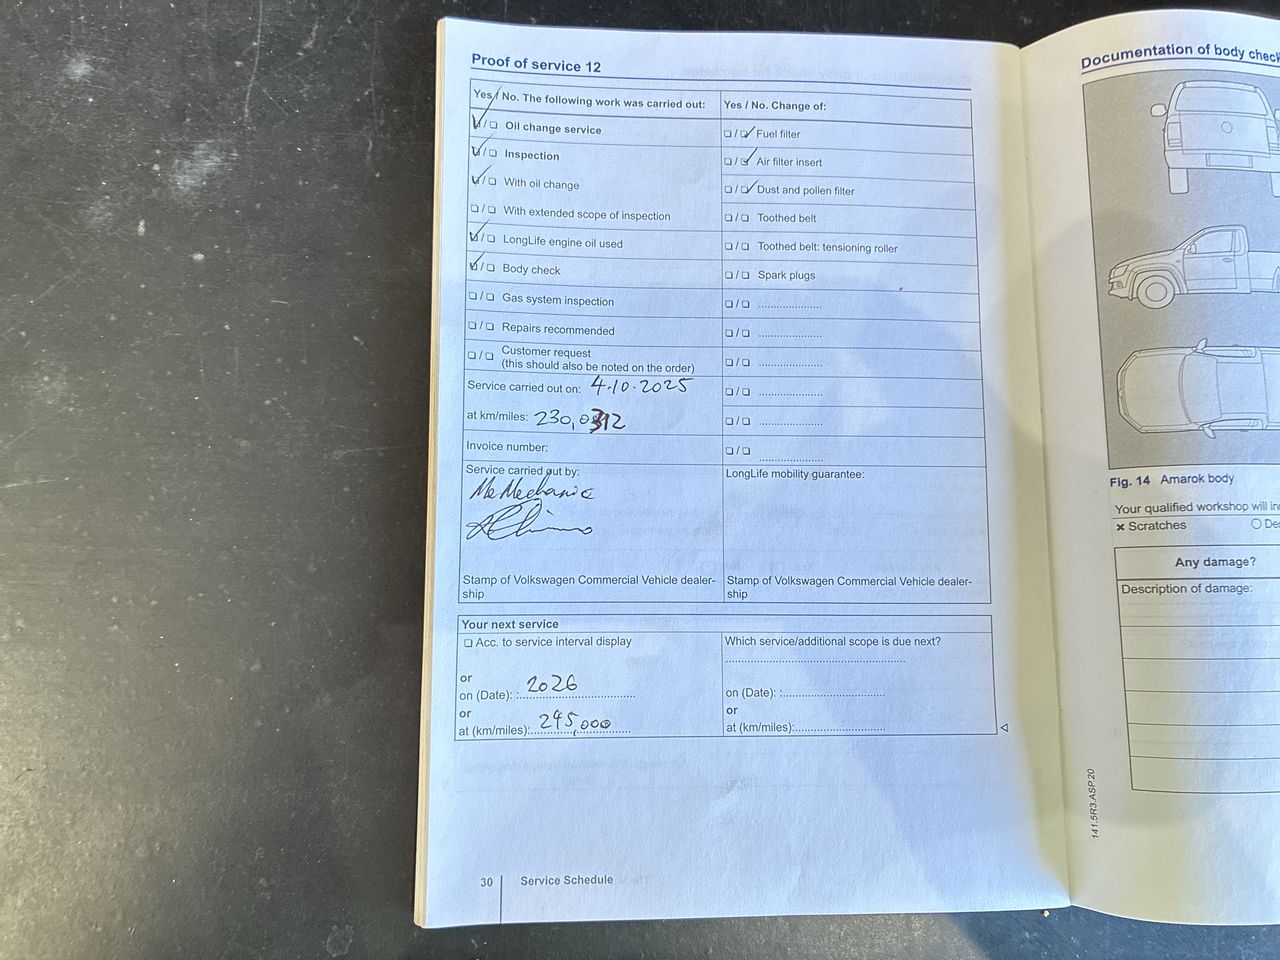 Proof of service 12
Yes / No. The following work was carried out:
Oil change service
Inspection
With oil change
With extended scope of inspection
LongLife engine oil used
Body check
Gas system inspection
Repairs recommended
Customer request
(this should also be noted on the order)
Service carried out on: 4.10.2025
at km/miles:
Invoice number:
Service carried out by:
Mechanic
Stamp of Volkswagen Commercial Vehicle dealer-
ship
Yes / No. Change of:
Fuel filter
Air filter insert
Dust and pollen filter
Toothed belt
Toothed belt: tensioning roller
Spark plugs
LongLife mobility guarantee:
Stamp of Volkswagen Commercial Vehicle dealer-
ship
Your next service
Acc. to service interval display
or
on (Date): : 2026
or
at (km/miles): 245,000
Which service/additional scope is due next?
on (Date): :
or
at (km/miles):
30 Service Schedule
Documentation of body check
Fig. 14 Amarok body
Your qualified workshop will in
Scratches
De
Any damage?
Description of damage:
141.5R3.ASP.20